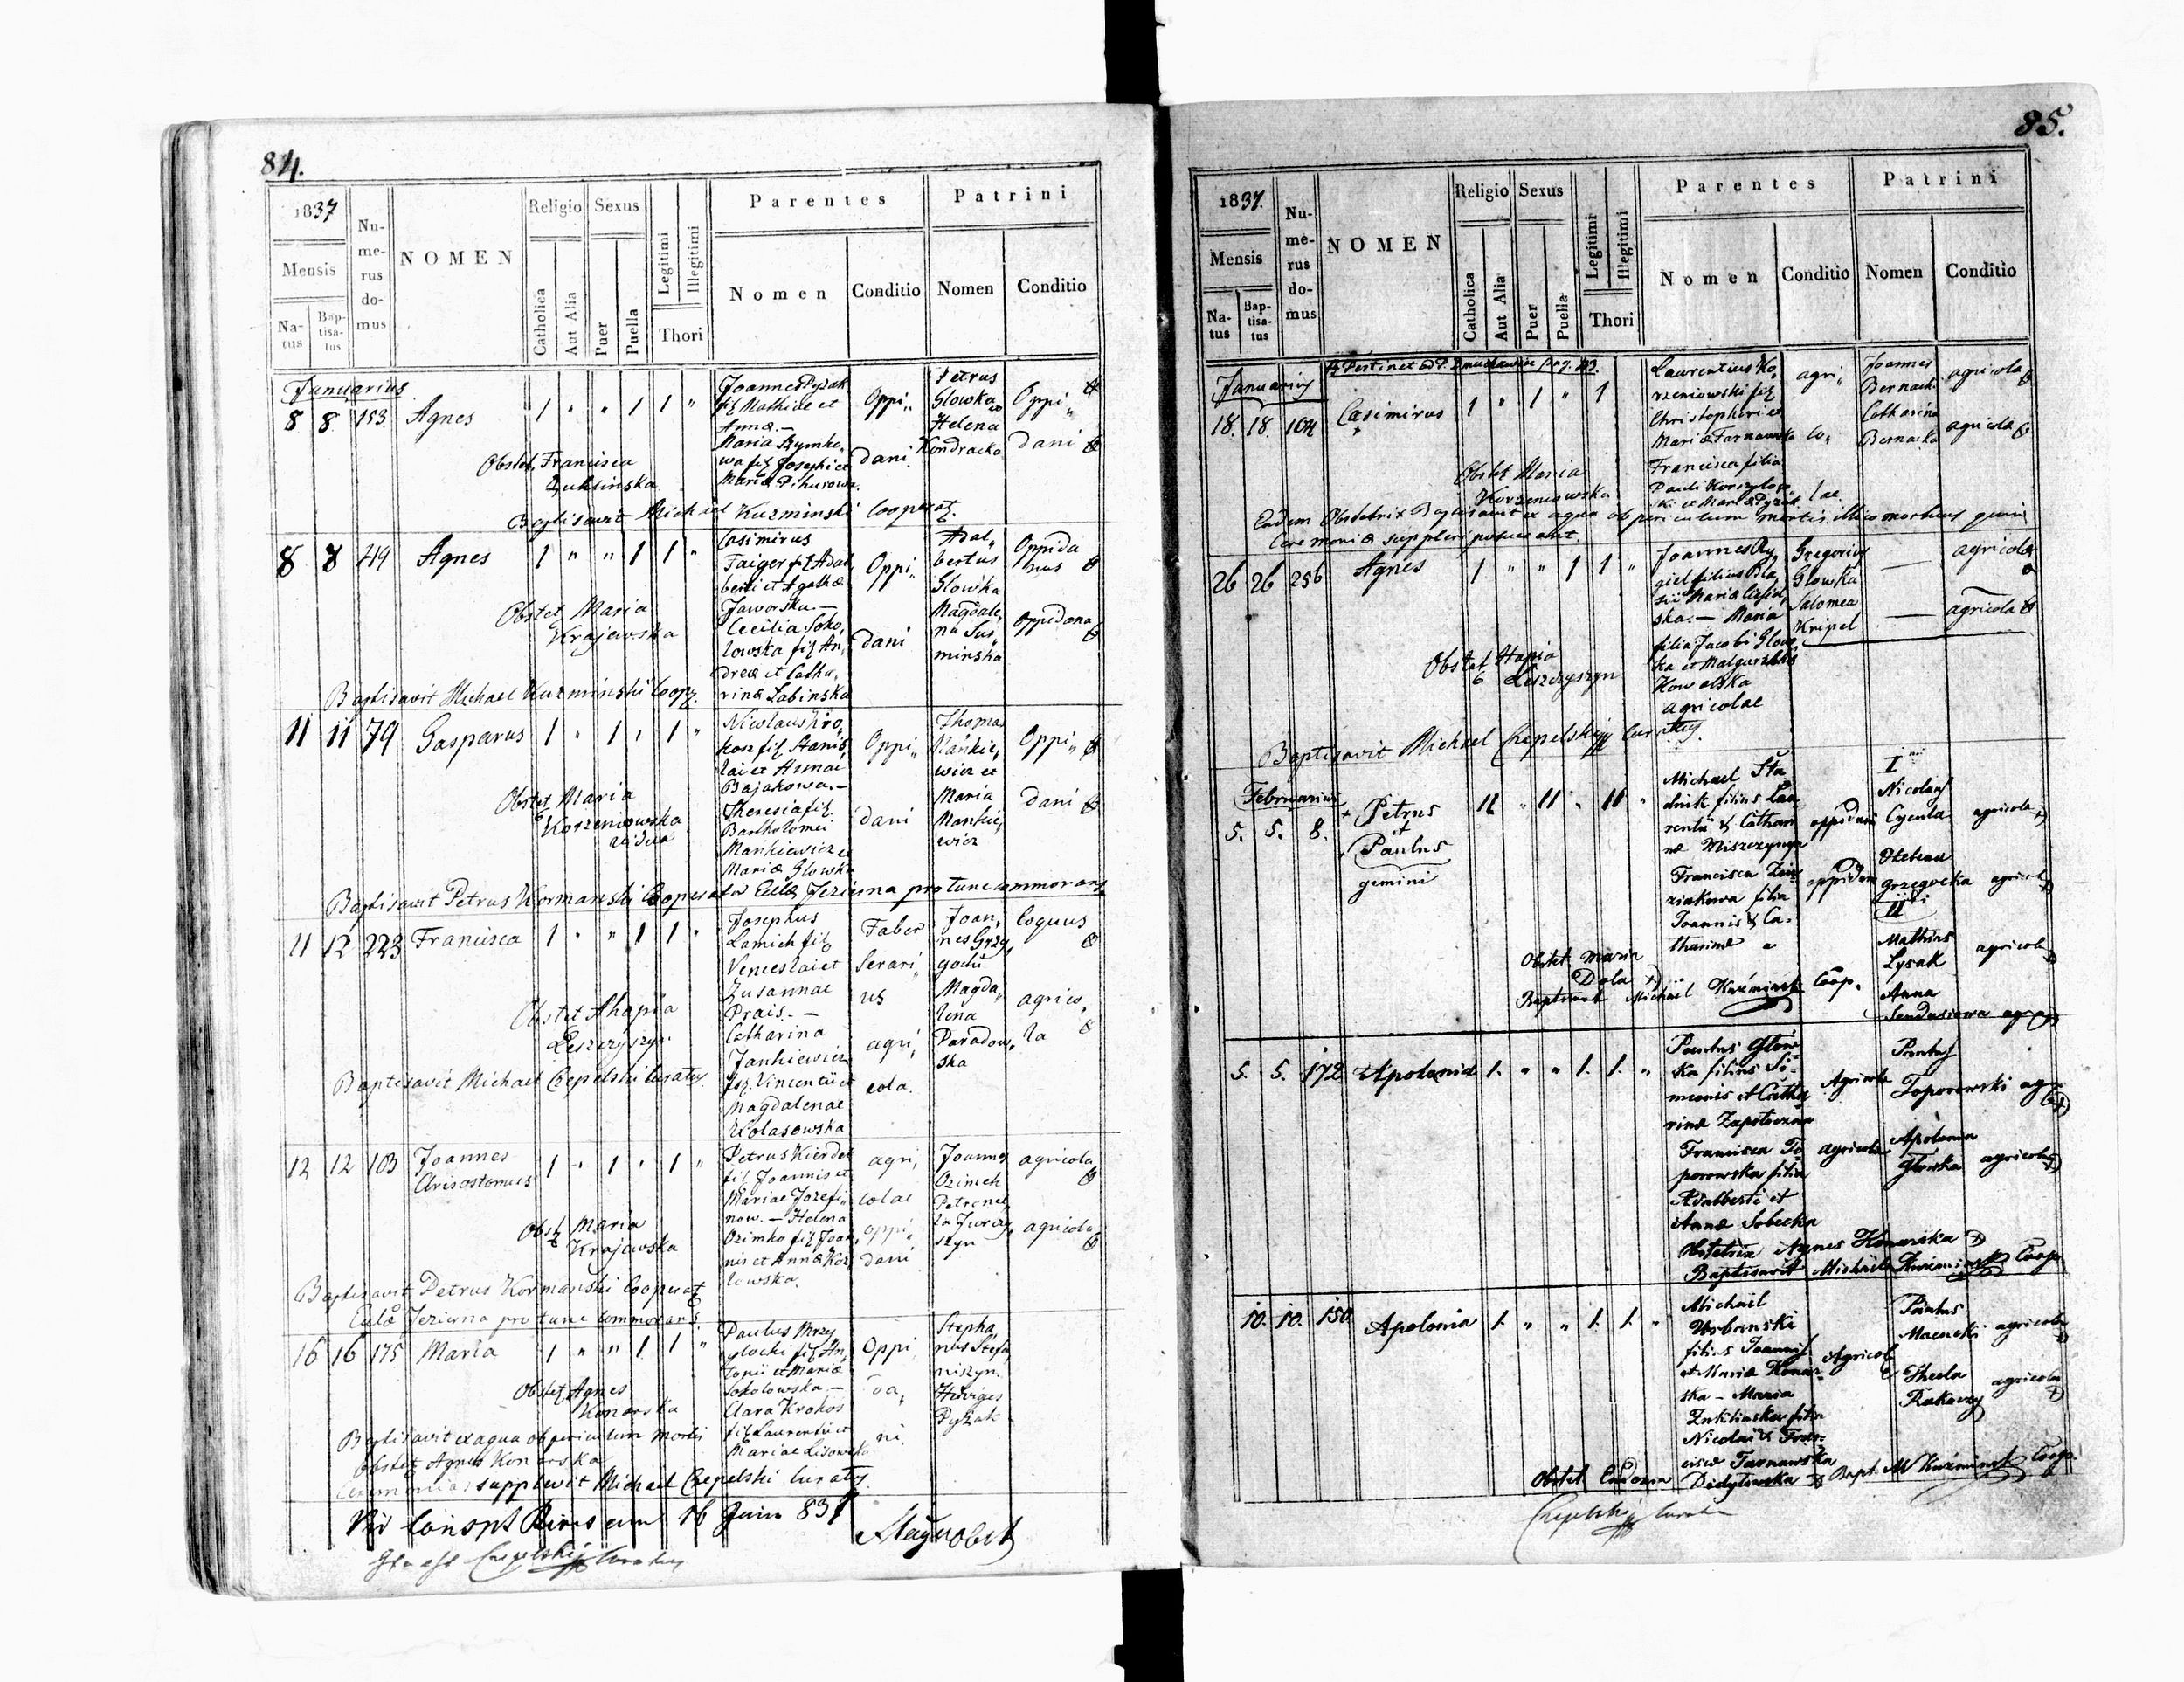 84.
1837
Mensis
Na-
tus
Bap-
tisa-
tus
Nu-
me-
rus
do-
mus
NOMEN
Religio
Catholica
Aut Alia
Sexus
Puer
Puella
Legitimi
Illegitimi
Thori
Parentes
Nomen
Conditio
Patrini
Nomen
Conditio
Januarius
8 8 153 Agnes 1 " " 1 1 "
Joannes Pyzak
fil Mathiae et
Annae.—
Maria Szymko,
wa fil Josephi et
Maria
Oppi„
dani
Petrus
Glowka
Helena
Kondracka
Oppi„
dani
Obstet. Francisca
Zuklinska
Baptisavit Michael Kuzminski Cooperat.
8 8 219 Agnes 1 " " 1 1 "
Casimirus
Faiger fil Adal
berti et Agathae
Jaworska.—
Cecilia Soko,
lowska fil An,
dreae et Catha,
rinae Labinska
Oppi„
dani
Adal„
bertus
Glowka
Magdale,
na Sus„
minska
Oppida
nus
oppidana
Obstet Maria
Krajewska
Baptisavit Michael Kuzminski Coop.
11 11 79 Gasparus 1 " 1 " 1 "
Nicolaus Kro,
kosz fil Stanis,
lai et Annae
Bajakowa.—
Theresia fil
Bartholomei
Mankiewicz et
Mariae Glowka
Oppi„
dani
Thomas
Mankie,
wicz et
Maria
Mankie,
wicz
Oppi„
dani
Obstet Maria
Korzeniowska
vidua
Baptisavit Petrus Kormanski Cooperator Jezierna pro tunc commorans
11 12 223 Francisca 1 " " 1 1 "
Josephus
Lamich fil
Venceslai et
Zusannae
Prais.—
Catharina
Jankiewicz
fil. Vincentii et
Magdalenae
Kolasowska
Faber
Serari„
us
agri,
cola.
Joan„
nes Grzy
gocki
Magda„
lena
Paradow„
ska
Coquus
agrico„
la
Obstet Ahapia
Leszczyszyn
Baptisavit Michael Czepelski Curatus.
12 12 103 Joannes
Crisostomus 1 " 1 " 1 "
Petrus Kierdei
fil Joannis et
Mariae Jozefi„
now.— Helena
Ozimko fil Joan
nis et Annae Koz
lowska
agri„
colae
oppi„
dani
Joannes
Ozimek
Petronel,
la Jurczy
szyn
agricola
agricola
Obst Maria
Krajewska
Baptisavit Petrus Kormanski Cooperat
Jezierna pro tunc commorans.
16 16 175 Maria 1 " " 1 1 "
Paulus Mrzy
glocki fil An,
tonii et Mariae
Sokolowska —
Clara Krokos
fil Laurentii et
Mariae Lisowska
Oppi
da„
ni.
Stepha„
nus Stefa
niszyn.
Hedviges
Pyzak
Obstet Agnes
Konarska
Baptisavit ex aqua ob periculum mortis
Obstet Agnes Konarska
Ceremonias supplevit Michael Czepelski Curatus
16 Juni 837
Czepelski Curatus
85.
1837.
Mensis
Na-
tus
Bap-
tisa-
tus
Nu-
me-
rus
do-
mus
NOMEN
Religio
Catholica
Aut Alia
Sexus
Puer
Puella
Legitimi
Illegitimi
Thori
Parentes
Nomen
Conditio
Patrini
Nomen
Conditio
Januarius
18. 18. 104 Casimirus 1 " 1 " 1
Laurentius Ko,
rzeniowski fil
Christopheri et
Mariae Tarnawska
Francisca filia
Pauli
agri„
co„
lae
Joannes
Bernacki
Catharina
Bernacka
agricola
agricola
Obstet Maria
Korzeniowska
Eadem Obstetrix Baptisavit ex aqua ob periculum mortis. Illico mortuus quin
Ceremoniae suppleri potuerant.
26 26 256 Agnes 1 " " 1 1 "
Joannes Ry„
giel filius Bla,
sii Mariae
ska.— Maria
filia Jacobi Glow,
ka et Malgorzatha
Kowalska
agricolae
Gregorius
Glowka
Salomea
Kripel
agricola
agricola
Obstet Hapia
Leszczyszyn
Baptisavit Michael Czepelski Curatus.
Februarius
5. 5. 8. Petrus
et
Paulus
gemini
11 " 11 " 11 "
Michael Sta
dnik filius Lau
rentii & Cathari
nae Miszczyszyn
Francisca Zim
ziakowa filia
Joannis & Ca-
tharinae
oppidani
oppidani
I
Nicolaus
Cycula
grzegocka
II
Mathias
Lysak
Anna
Sendusiowa
agricola
agricola
agricola
Obstet Maria
Dola
Baptisavit Michael Kuźminski Coop.
5. 5. 172 Apolonia 1. " " 1. 1. "
Paulus Glow
ka filius Si-
meonis et Catha
rinae Zapotoczna
Francisca To
porowska filia
Adalberti et
Annae Sobecka
Agricola
agricola
Paulus
Toporowski
Apolonia
Glowka
agricola
Obstetrix Agnes Konarska
Baptisavit Michael Kuzminski Coop.
10. 10. 150 Apolonia 1. " " 1. 1. "
Michael
Urbanski
filius Joannis
et Mariae Konar-
ska — Maria
Zuklinska filia
Nicolai & Fran-
ciscae Tarnawska
Agricola
Paulus
Macucki
Thecla
Rakoczy
agricola
agricola
Obstet Eudoxia Didytowska Bapt. M Kuźminski Coop.
Czepelski Curatus